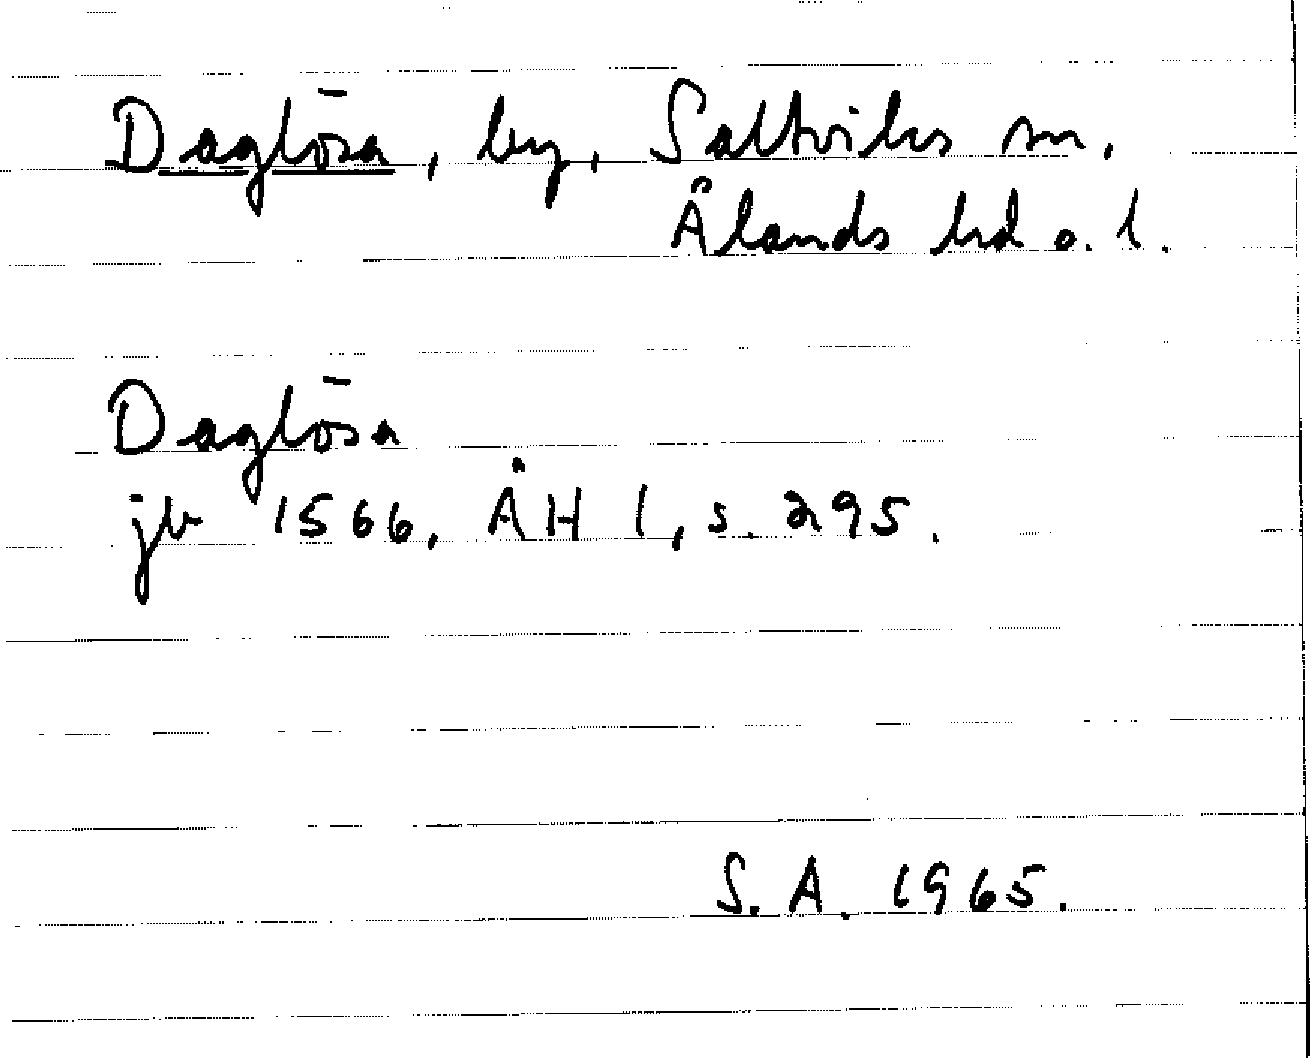 Daglösa, by, Saltviks sn.
Ålands hd o. l.
Daglösa
jb 1566, ÅH 1, s. 295.
S. A. 1965.